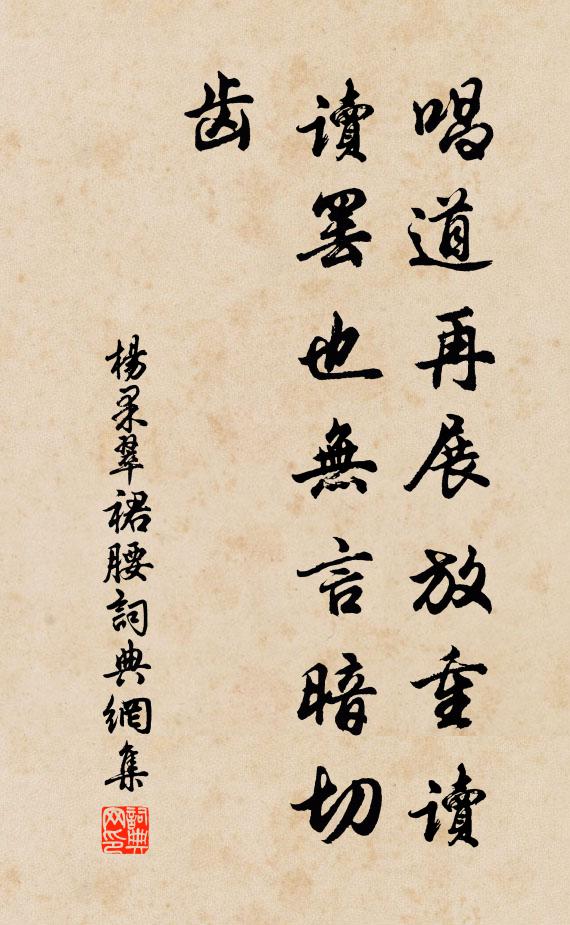 唱道再展放重讀
讀罷也無言暗切
齿
楊果翠裙腰詞典網集
詞典
网印